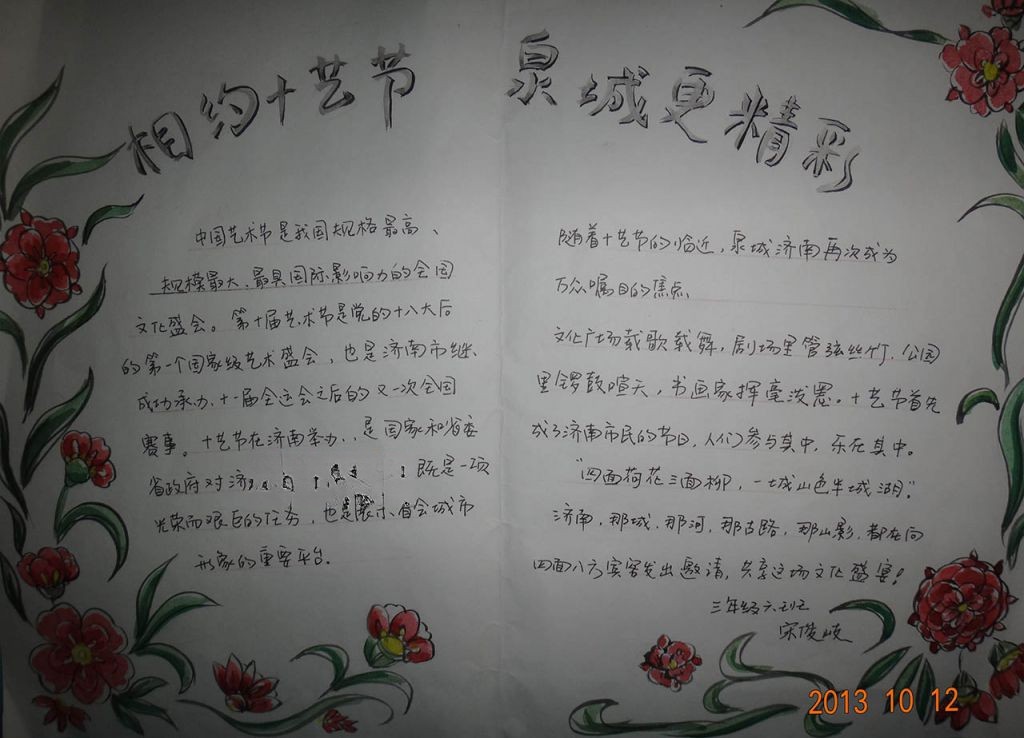 相约十艺节 泉城更精彩
中国艺术节是我国规格最高、
规模最大、最具国际影响力的全国
文化盛会。第十届艺术节是党的十八大后
的第一个国家级艺术盛会，也是济南市继
成功承办十一届全运会之后的又一次全国
赛事。十艺节在济南举办，是国家和省委
省政府对济 既是一项
光荣而艰巨的任务，也是展示省会城市
形象的重要平台。
随着十艺节的临近，泉城济南再次成为
万众瞩目的焦点
文化广场载歌载舞，剧场里管弦丝竹，公园
里锣鼓喧天，书画家挥毫泼墨。十艺节首先
成了济南市民的节日，人们参与其中，乐在其中。
“四面荷花三面柳，一城山色半城湖。”
济南，那城，那河，那古路，那山影，都在向
四面八方宾客发出邀请，共享这场文化盛宴！
三年级六班
宋俊岐
2013 10 12